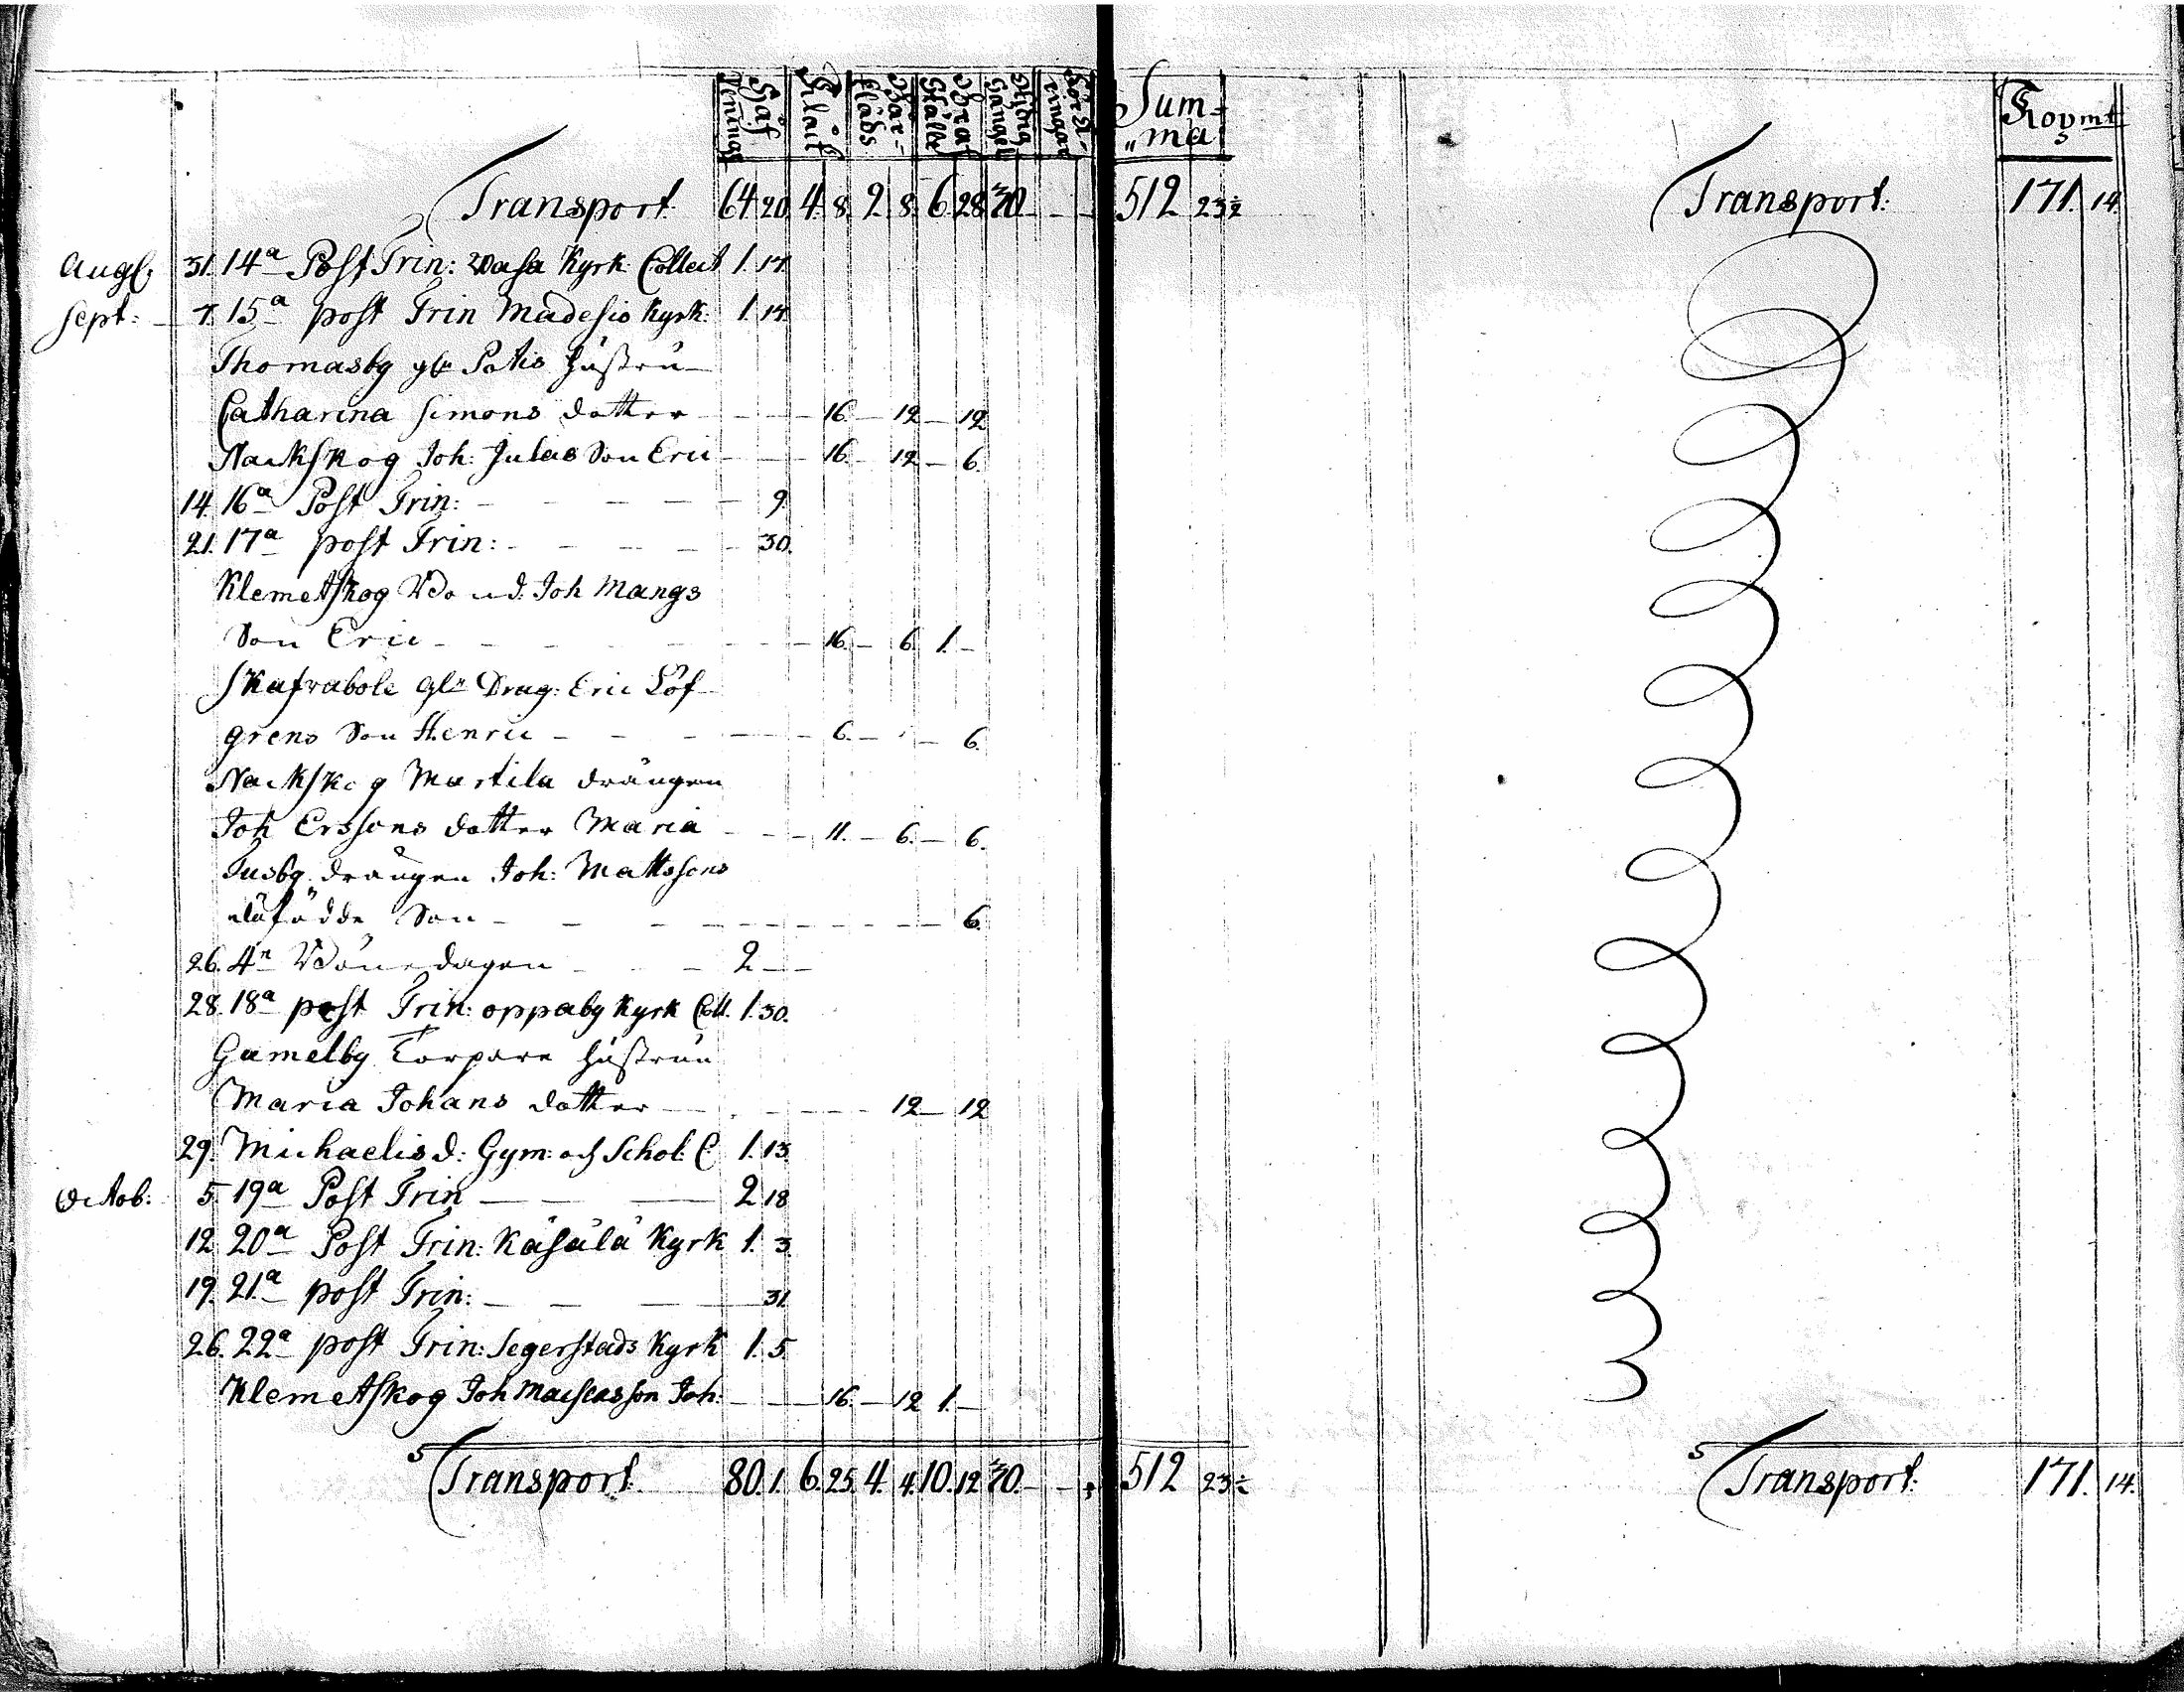 Håf Penings Klåck Bår-Kläds Graf Ställe Skjdna Gångel Försäringar Sum-„ma
Transport 64 20. 4. 8. 2. 8. 6. 28. 30 - - - 512 23½
Augs; 31. 14a Post Trin: Wasa Kyrk: Collect 1. 14.
Sept: 7. 15a post Trin Madesio Kyrk: 1. 14.
Thomasby gb Patis hustru
Catharina Simons dotter - - - 16. - 12 - 12
Nackskog Joh: Julas Son Eric - - - 16. - 12 - 6.
14. 16a Post Trin: - - - - - 9.
21. 17a post Trin: - - - - - 30.
Klemetskog Joh Mangs
Son Eric - - - - - 16. - 6. 1. -
Skafrabole Drag: Eric Löf
grens Son Henric - - - - - 6. - - 6.
Nackskog Martila drängen
Joh Erssons dotter Maria - - - 11. - 6. - 6.
Tusby drängen Joh: Mattssons
Son - - - - - - - 6.
26. 4n Bönedagen - - - 2 - -
28. 18a post Trin: oppaby Kyrk Coll. 1. 30.
Gamelby Torpare hustrun
Maria Johans dotter - - - - - 12 - 12
29. Michaelis d: Gym: och Schol: C 1. 13.
Octob: 5. 19a Post Trin - - - 2 18
12 20a Post Trin: Käsälä Kyrk 1. 3.
19. 21a post Trin: - - - - 31.
26. 22a post Trin: Segerstads Kyrk 1. 5.
Klemetskog Joh Joh: - - - 16. - 12 1. -
Transport 80. 1. 6. 25. 4. 4. 10. 12. 30. - - - 512 23½
Koymt
Transport: 171. 14.
Transport: 171. 14.